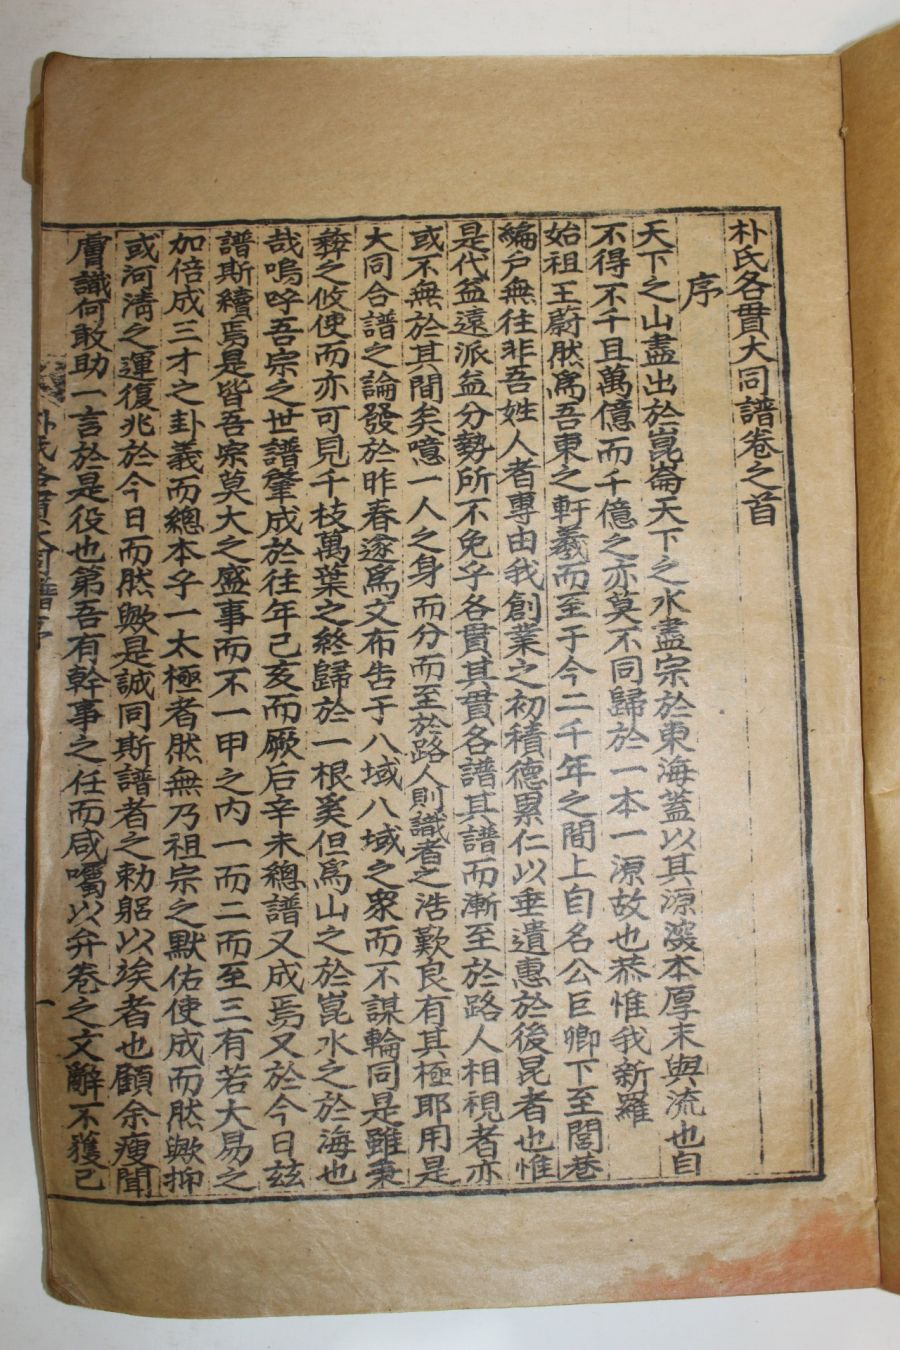 朴氏各貫大同譜卷之首
序
天下之山盡出於崑崙天下之水盡宗於東海蓋以其源深本厚末與流也自
不得不千且萬億而千億之亦莫不同歸於一本一源故也恭惟我新羅
始祖王蔚然爲吾東之軒羲而至于今二千年之間上自名公巨卿下至閭巷
編户無往非吾姓人者專由我創業之初積德累仁以垂遺惠於後昆者也惟
是代益遠派益分勢所不免乎各貫其貫各譜其譜而漸至於路人相視者亦
或不無於其間矣噫一人之身而分而至於路人則識者之浩歎良有其極耶用是
大同合譜之論發於昨春遂爲文布告于八域八域之衆而不謀輪同是雖秉
彝之攸使而亦可見千枝萬葉之終歸於一根奚但爲山之於崑水之於海也
哉嗚呼吾宗之世譜肇成於往年己亥而厥后辛未總譜又成焉又於今日玆
譜斯續焉是皆吾宗莫大之盛事而不一甲之内一而二而至三有若大易之
加倍成三才之卦義而總本乎一太極者然無乃祖宗之默佑使成而然歟抑
或河淸之運復兆於今日而然歟是誠同斯譜者之勑躬以竢者也顧余瘦聞
膚識何敢助一言於是役也第吾有幹事之任而咸囑以弁卷之文辭不獲已
朴氏各貫大同譜序
一